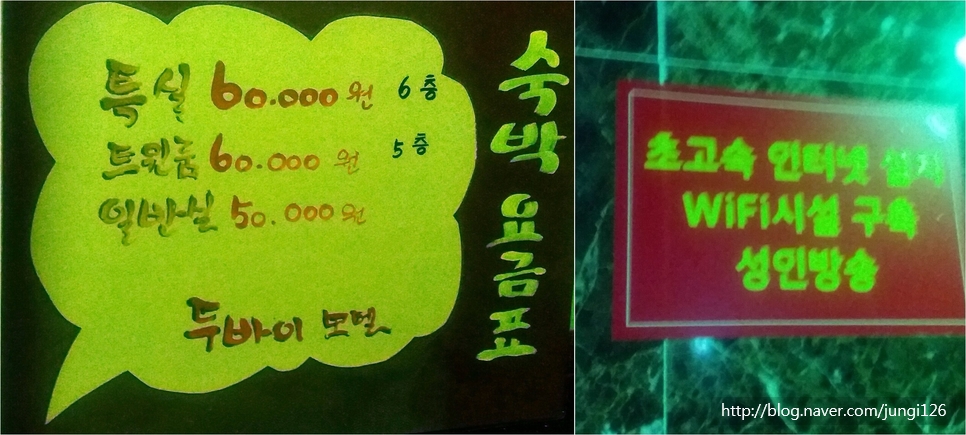 특실 60.000원 6층
트윈룸 60.000원 5층
일반실 50.000원
두바이 모텔
숙박 요금표
초고속 인터넷 설치
WiFi시설 구축
성인방송
http://blog.naver.com/jungi126